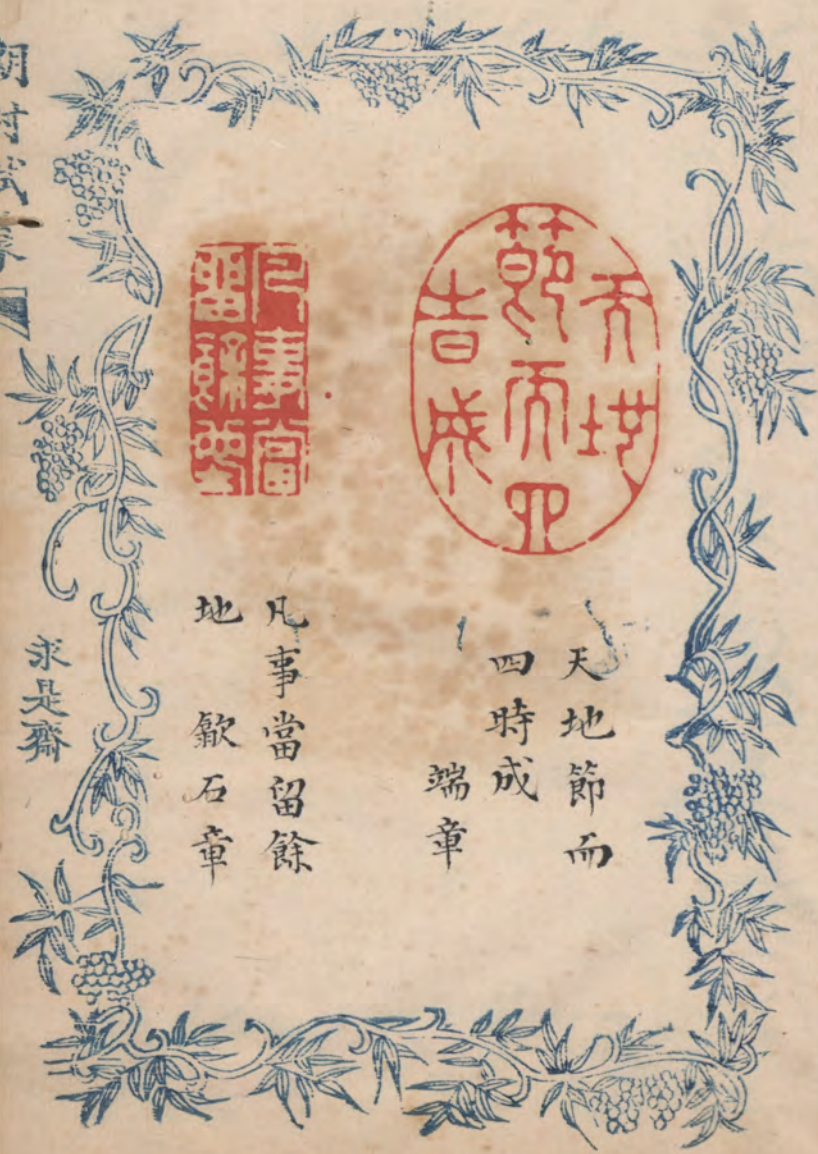 天地節而四時成
凡事當留餘地
天地節而
四時成
端章
凡事當留餘
地 歙石章
求是齋